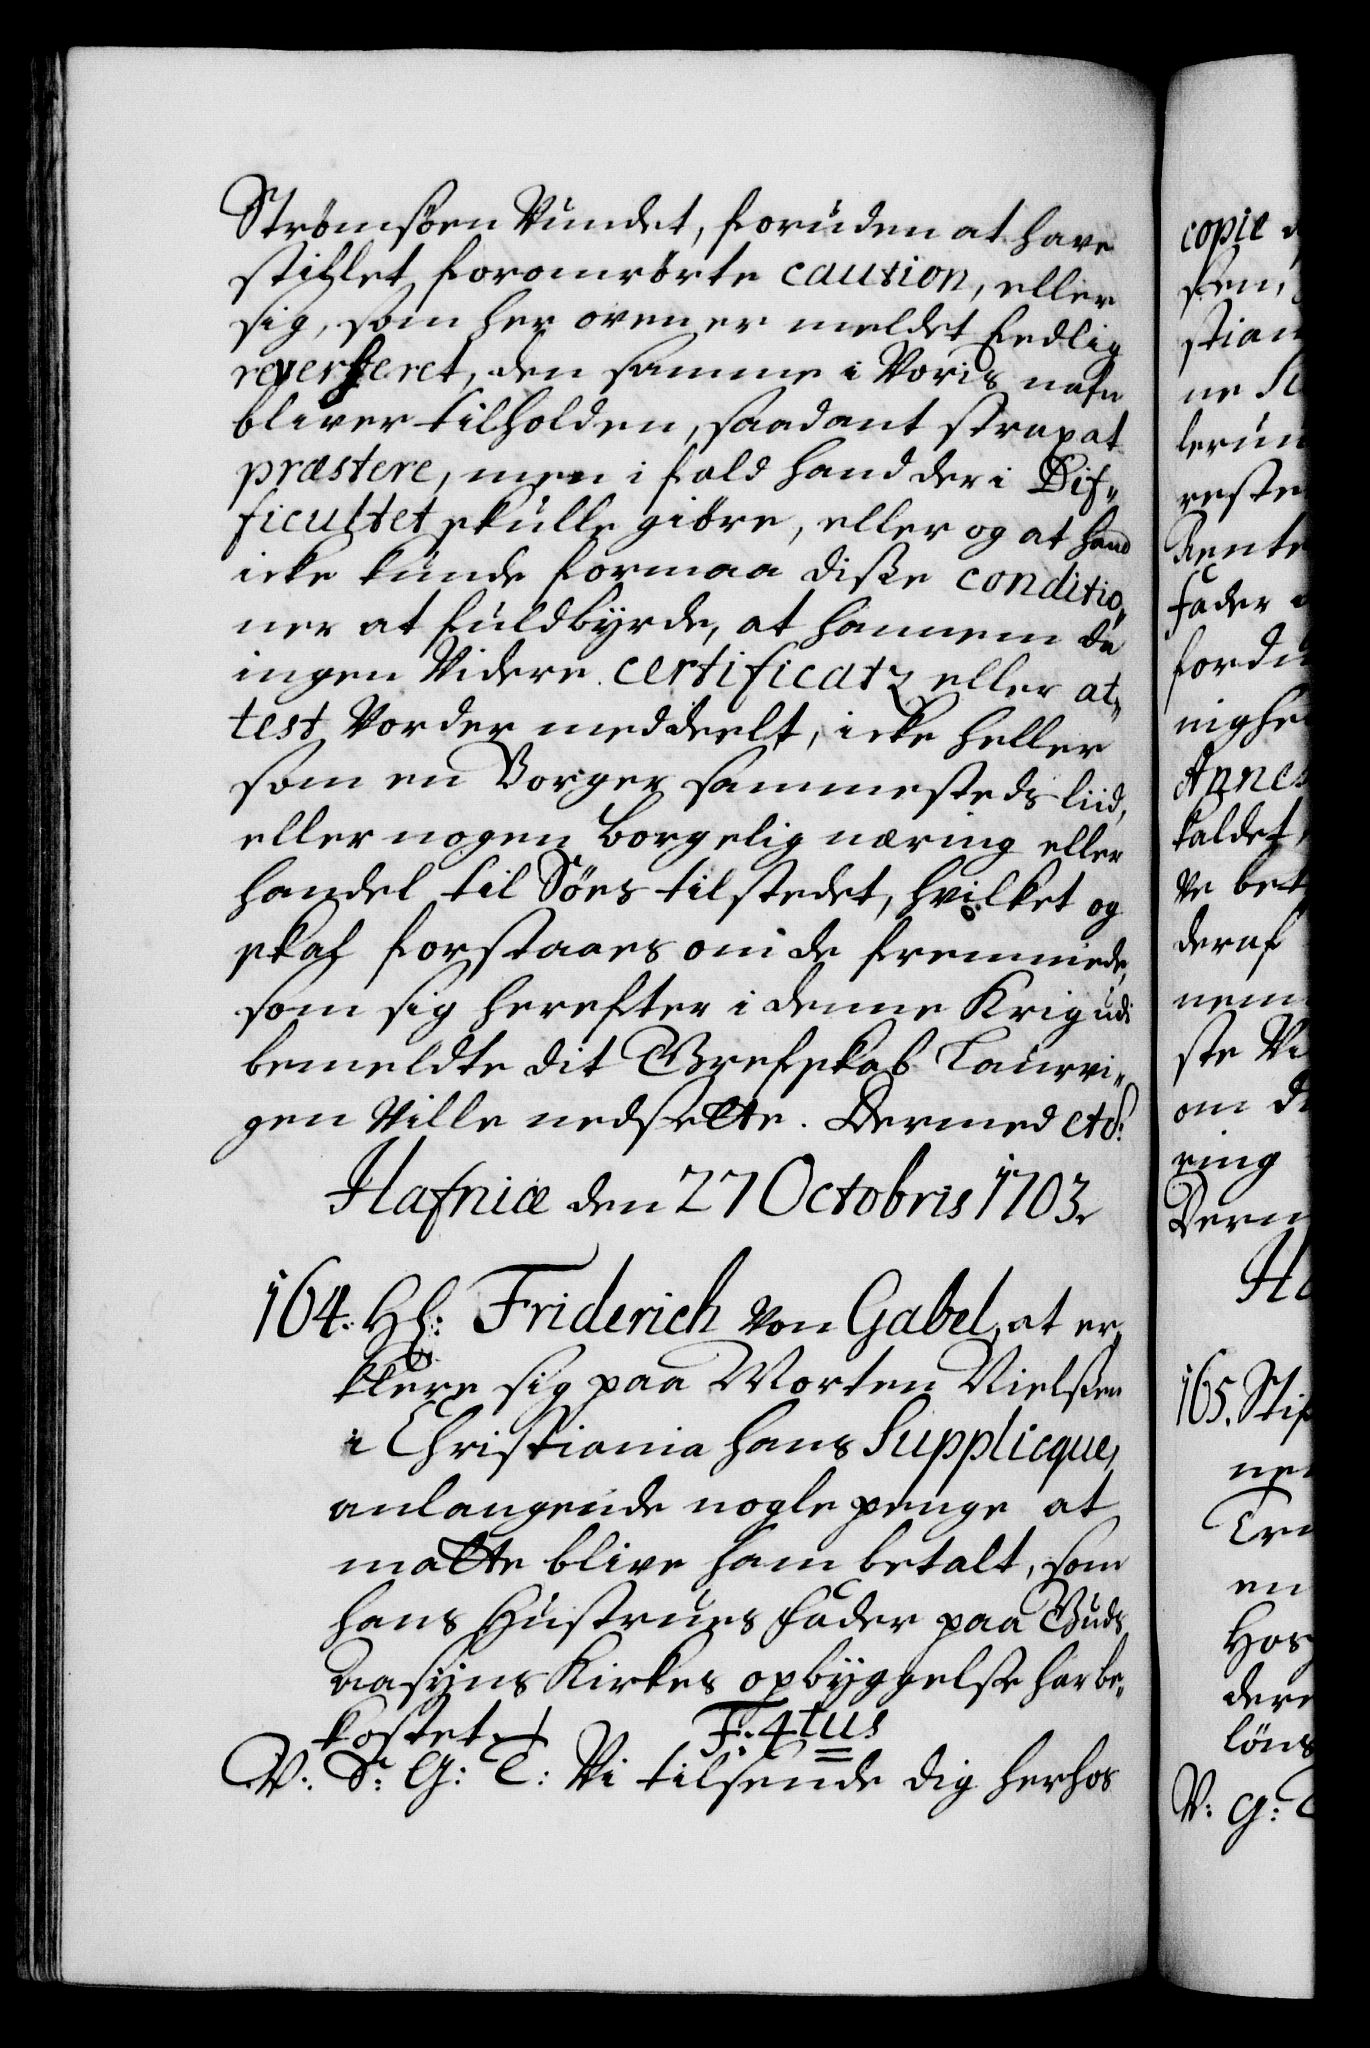 Strömsöen Vundet, foruden at have
stillet foromrörte caution, eller
sig, som her oven er meldet Eedlig
reverseret, den samme i Voris nafn
bliver tilholden, saadant strax at
præstere, men i fald hand der i Dif„
ficultet skulle giöre, eller og at hand
icke kunde formaa disse conditio„
ner at fuldbyrde, at hannem da
ingen Videre certificatz eller at„
test Vorder meddeelt, icke heller
som en Borger sammesteds liid,
eller nogen borgelig næring eller
handel til Söes tilstedet, hvilket og
skal forstaaes om de fremmede,
som sig herefter i denne Krig udi
bemeldte dit Grefskab Laurvi„
gen Ville nedsette. Dermed etc:
Hafniæ den 27 Octobris 1703.
164. Hl: Friderich von Gabel, at er„
klere sig paa Morten Nielssen
i Christiania hans Supplicque,
anlangende nogle penge at
motte blive ham betalt, som
hans Hustrues Fader paa Guds
aasyns Kirkes opbyggelse har be„
kostet. F. 4tus
V: S: G: T: Vi tilsende dig herhos
copie
sten,
stian
ne
lerun
reste
Rente
Fader
fordi
nighe
Agnes
kaldet,
Ve bet
deraf
nem
ste Vi
om
ring
Derm
Ha
165. Stif
ne
en
Hos
dere
löns
V: G: T